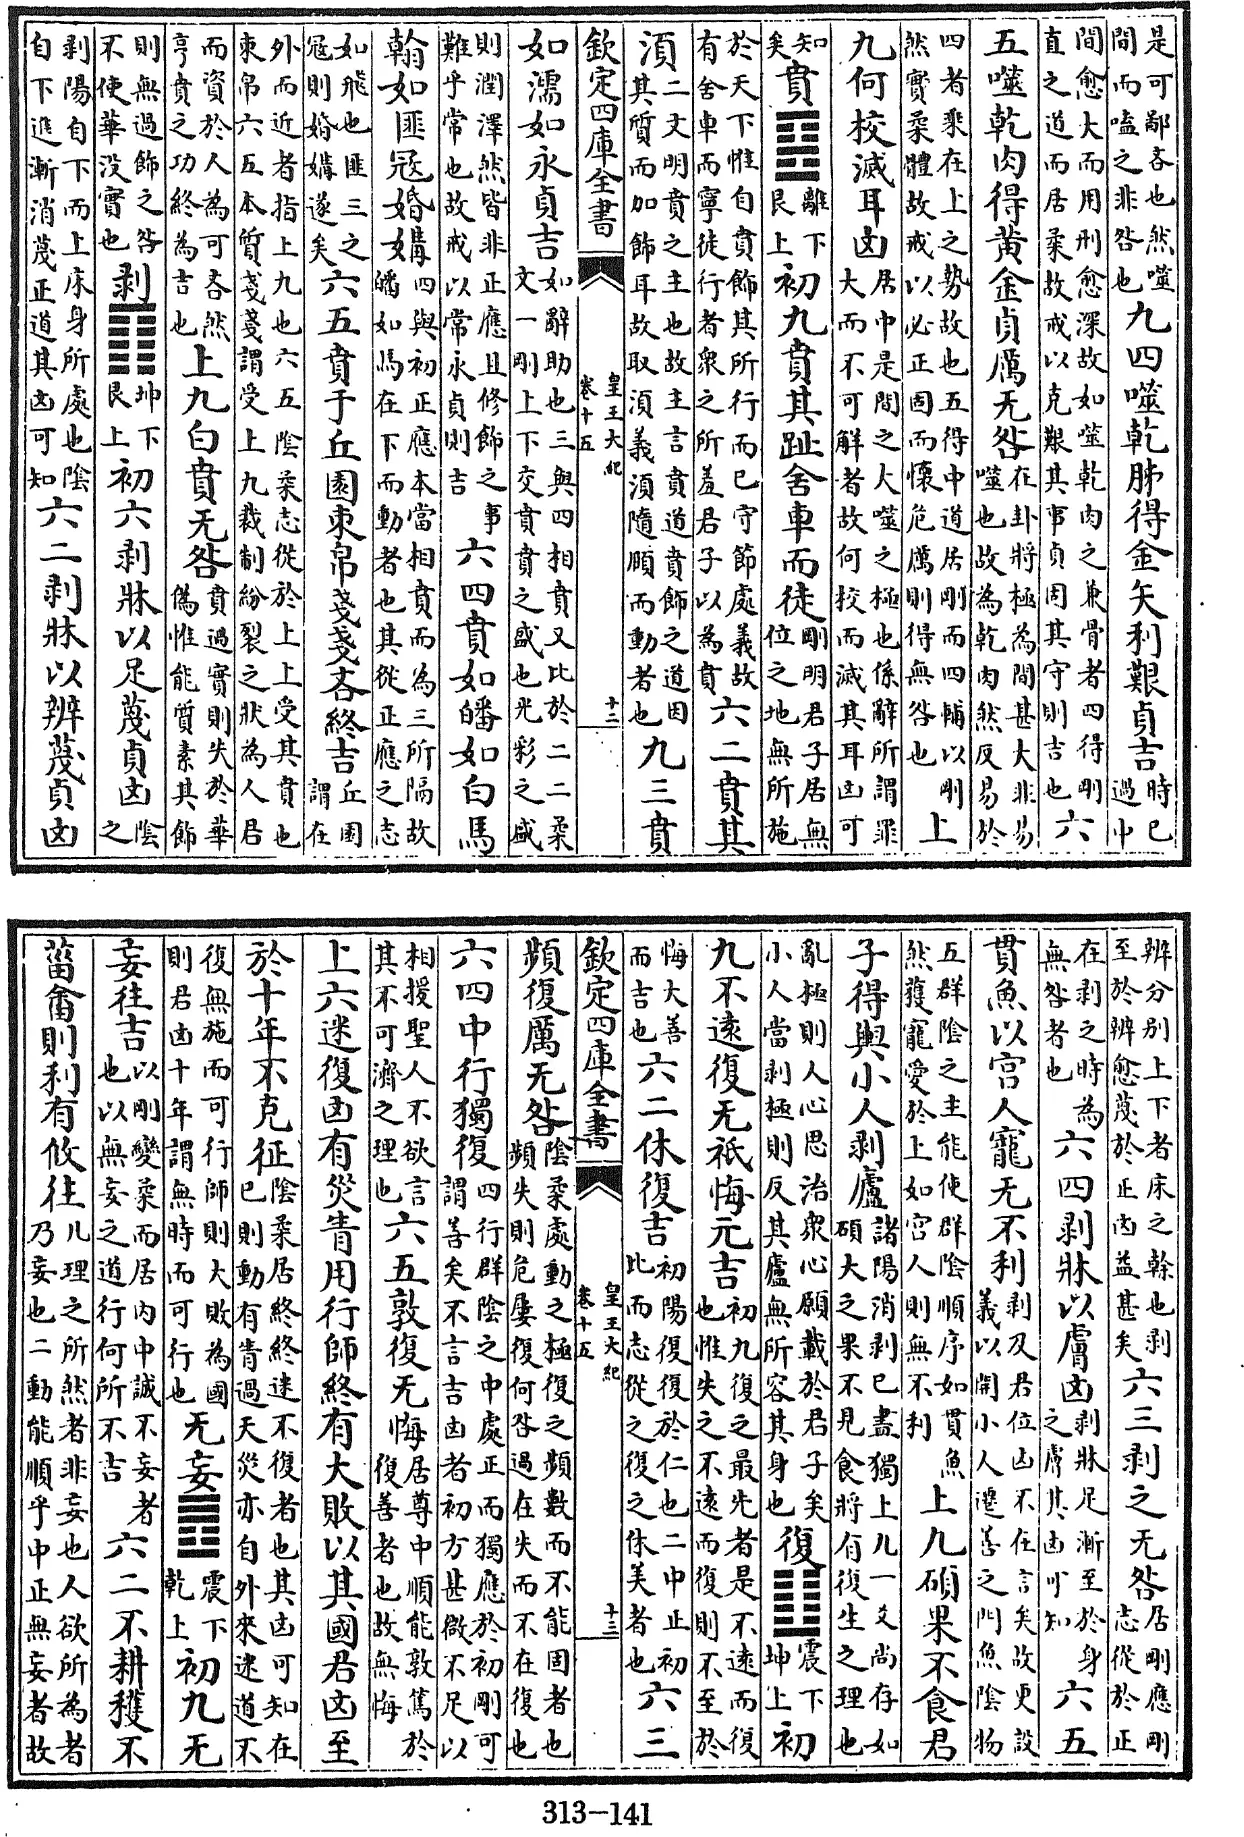 是可鄙吝也然噬間而嗑之非咎也九四噬乾胏得金矢利艱貞吉時已過中
間愈大而用刑愈深故如噬乾肉之兼骨者四得剛直之道而居柔故戒以克艱其事貞固其守則吉也六
五噬乾肉得黃金貞厲无咎在卦將極為間甚大非易噬也故為乾肉然反易於
四者乘在上之勢故也五得中道居剛而四輔以剛然實柔體故戒以必正固而懷危厲則得無咎也上
九何校滅耳凶居中是間之大噬之極也係辭所謂罪大而不可解者故何校而滅其耳凶可
知矣賁䷕離下艮上初九賁其趾舍車而徒剛明君子居無位之地無所施
於天下惟自賁飾其所行而已守節處義故有舍車而寧徒行者衆之所羞君子以為賁六二賁其
湏二文明賁之主也故主言賁道賁飾之道因其質而加飾耳故取湏義湏隨頥而動者也九三賁
欽定四庫全書 皇王大紀 卷十五 十二
如濡如永貞吉如辭助也三與四相賁又比於二二柔文一剛上下交賁賁之盛也光彩之盛
則潤澤然皆非正應且修飾之事難乎常也故戒以常永貞則吉六四賁如皤如白馬
翰如匪冦婚媾四與初正應本當相賁而為三所隔故皤如馬在下而動者也其從正應之志
如飛也匪三之冦則婚媾遂矣六五賁于丘園束帛戔戔吝終吉丘園謂在
外而近者指上九也六五陰柔志從於上上受其賁也束帛六五本質戔戔謂受上九裁制紛裂之狀為人君
而資於人為可吝然亨賁之功終為吉也上九白賁无咎賁過實則失於華偽惟能質素其飾
則無過飾之咎不使華没實也剥䷖坤下艮上初六剥牀以足蔑貞凶陰之
剥陽自下而上床身所處也陰自下進漸消蔑正道其凶可知六二剥牀以辨蔑貞凶
辨分别上下者床之幹也剥至於辨愈蔑於正凶益甚矣六三剥之无咎居剛應剛志從於正
在剥之時為無咎者也六四剥牀以膚凶剥牀足漸至於身之膚其凶可知六五
貫魚以宫人寵无不利剥及君位凶不在言矣故更設義以開小人遷善之門魚陰物
五群陰之主能使群陰順序如貫魚然獲寵愛於上如宫人則無不利上九碩果不食君
子得輿小人剥廬諸陽消剥已盡獨上九一爻尚存如碩大之果不見食將有復生之理也
亂極則人心思治衆心願載於君子矣小人當剥極則反其廬無所容其身也復䷗震下坤上初
九不遠復无祇悔元吉初九復之最先者是不遠而復也惟失之不遠而復則不至於
悔大善而吉也六二休復吉初陽復復於仁也二中正初比而志從之復之休美者也六三
欽定四庫全書 皇王大紀 卷十五 十三
頻復厲无咎陰柔處動之極復之頻數而不能固者也頻失則危屢復何咎過在失而不在復也
六四中行獨復四行群陰之中處正而獨應於初剛可謂善矣不言吉凶者初方甚微不足以
相援聖人不欲言其不可濟之理也六五敦復无悔居尊中順能敦篤於復善者也故無悔
上六迷復凶有災眚用行師終有大敗以其國君凶至
於十年不克征陰柔居終終迷不復者也其凶可知在已則動有眚過天災亦自外來迷道不
復無施而可行師則大敗為國則君凶十年謂無時而可行也无妄䷘震下乾上初九无
妄往吉以剛變柔而居内中誠不妄者也以無妄之道行何所不吉六二不耕穫不
菑畬則利有攸往凡理之所然者非妄也人欲所為者乃妄也二動能順乎中正無妄者故
313-141